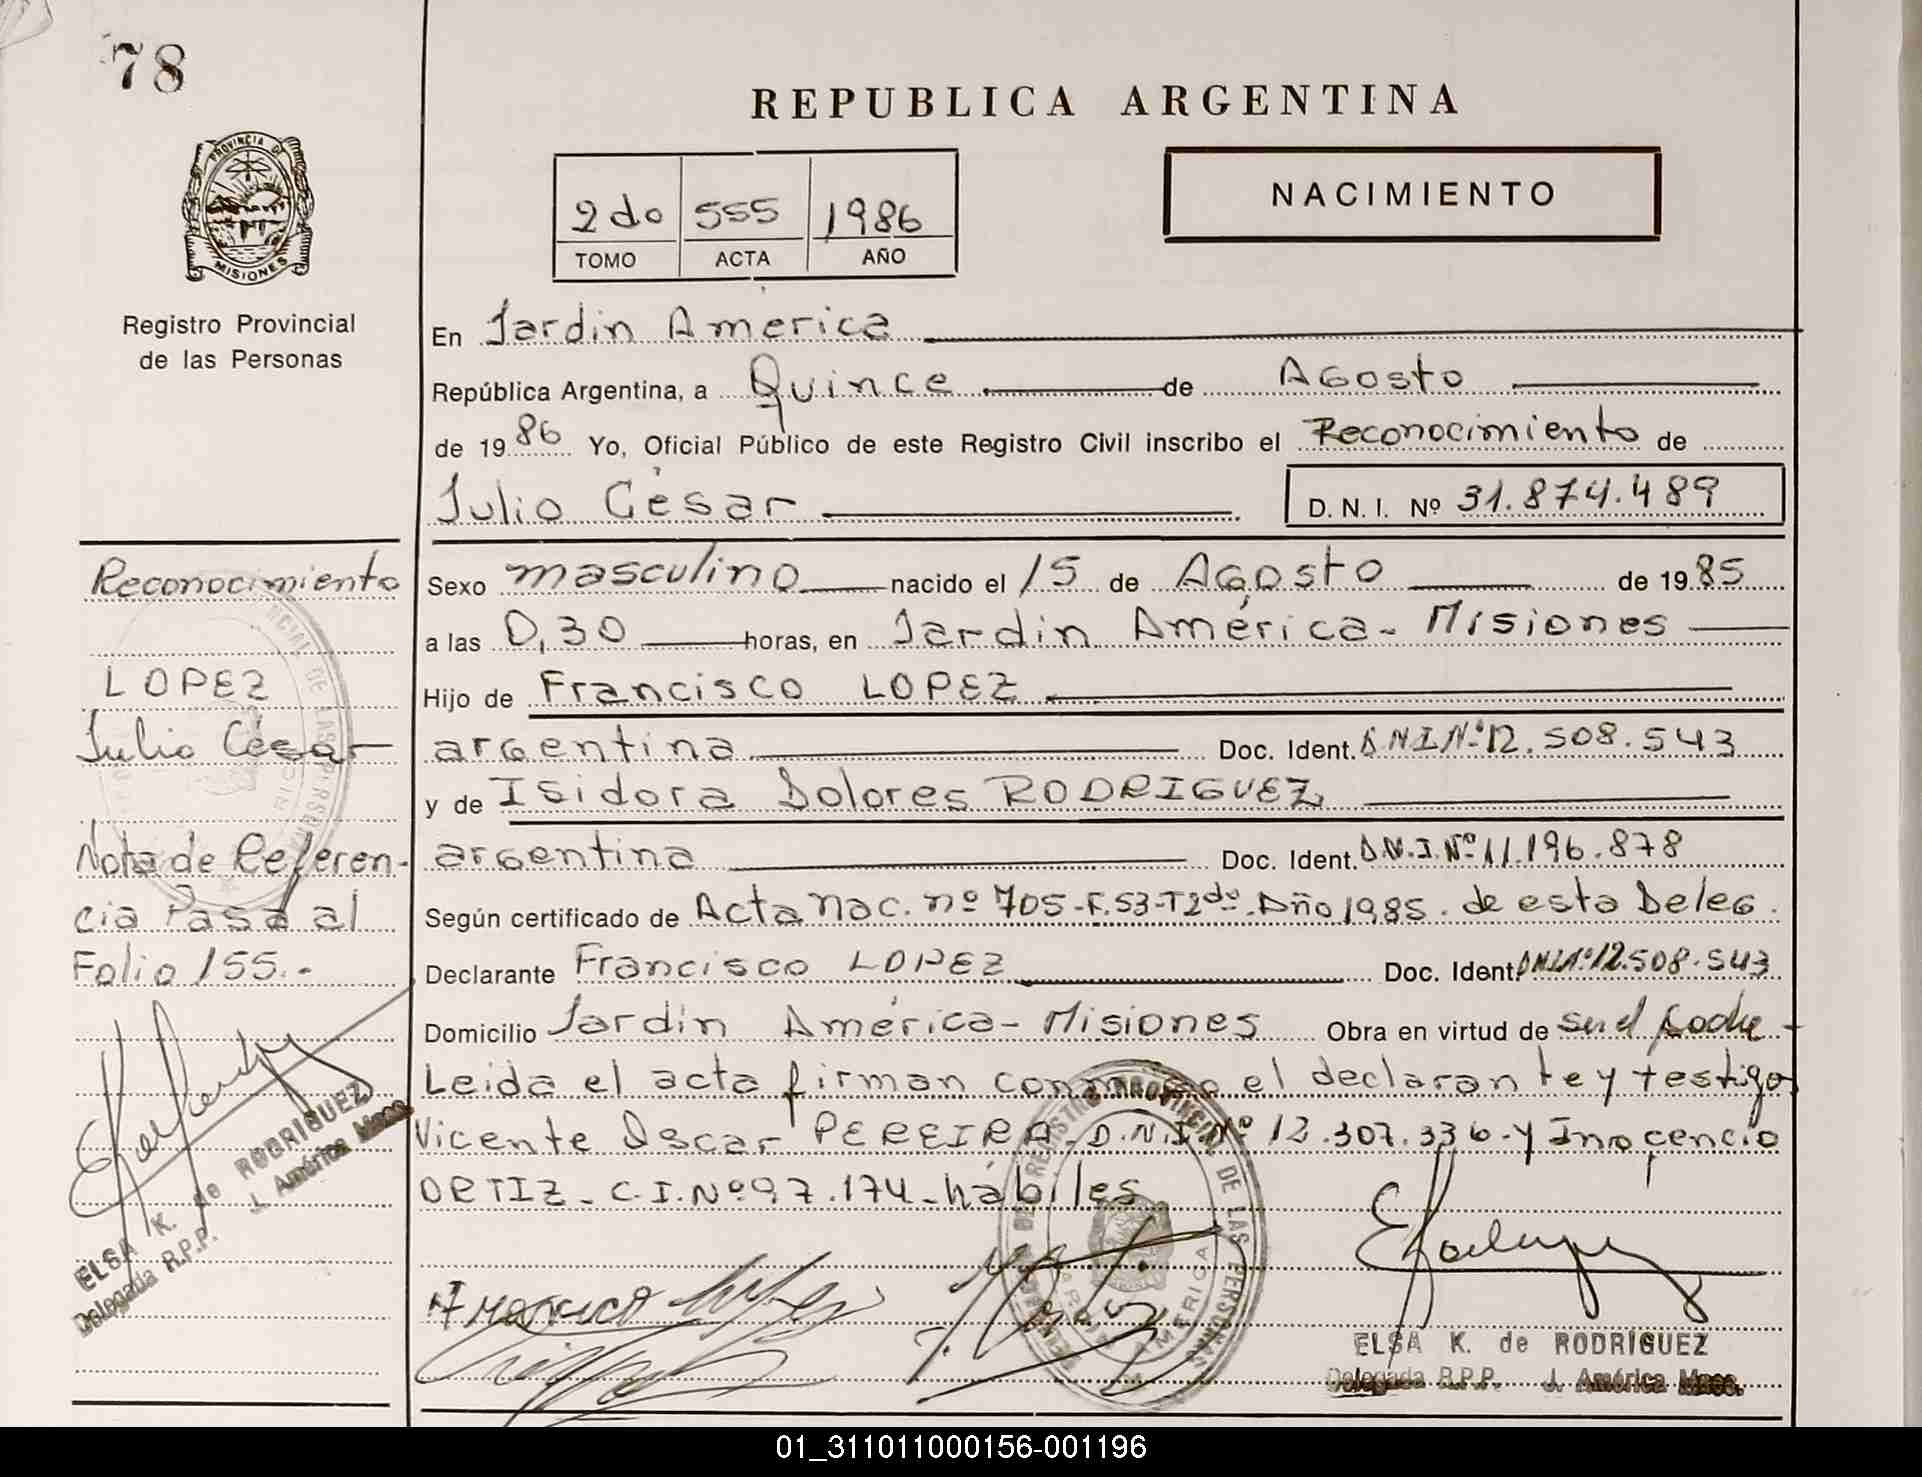 78
REPUBLICA ARGENTINA
PROVINCIA DE
MISIONES
Registro Provincial
de las Personas
2do 555 1986
TOMO ACTA AÑO
NACIMIENTO
En Jardin America
República Argentina, a Quince de Agosto
de 1986 Yo, Oficial Público de este Registro Civil inscribo el Reconocimiento de
Julio César D. N. I. Nº 31.874.489
Sexo masculino nacido el 15 de Agosto de 1985
a las 0,30 horas, en Jardin América - Misiones
Hijo de Francisco LOPEZ
argentina Doc. Ident. D.N.I.Nº 12.508.543
y de Isidora Dolores RODRIGUEZ
argentina Doc. Ident. D.N.I.Nº 11.196.878
Según certificado de Acta Nac. nº 705-F.53-T2do.Año 1985. de esta Deleg.
Declarante Francisco LOPEZ Doc. Ident. DNINº 12.508.543
Domicilio Jardin América - Misiones Obra en virtud de ser el padre
Leida el acta firman conmigo el declarante y testigos
Vicente Oscar PEREIRA - D.N.I.Nº 12.307.336 - y Inocencio
ORTIZ - C.I.Nº 97.174 - hábiles
Reconocimiento
LOPEZ
Julio César
Nota de Referen-
cia Pasa al
Folio 155.-
ELSA K. de RODRIGUEZ
Delegada R.P.P. J. América Mnes.
DEL REGISTRO PROVINCIAL DE LAS PERSONAS
JARDIN AMERICA
ELSA K. de RODRIGUEZ
Delegada R.P.P. J. América Mnes.
01_311011000156-001196